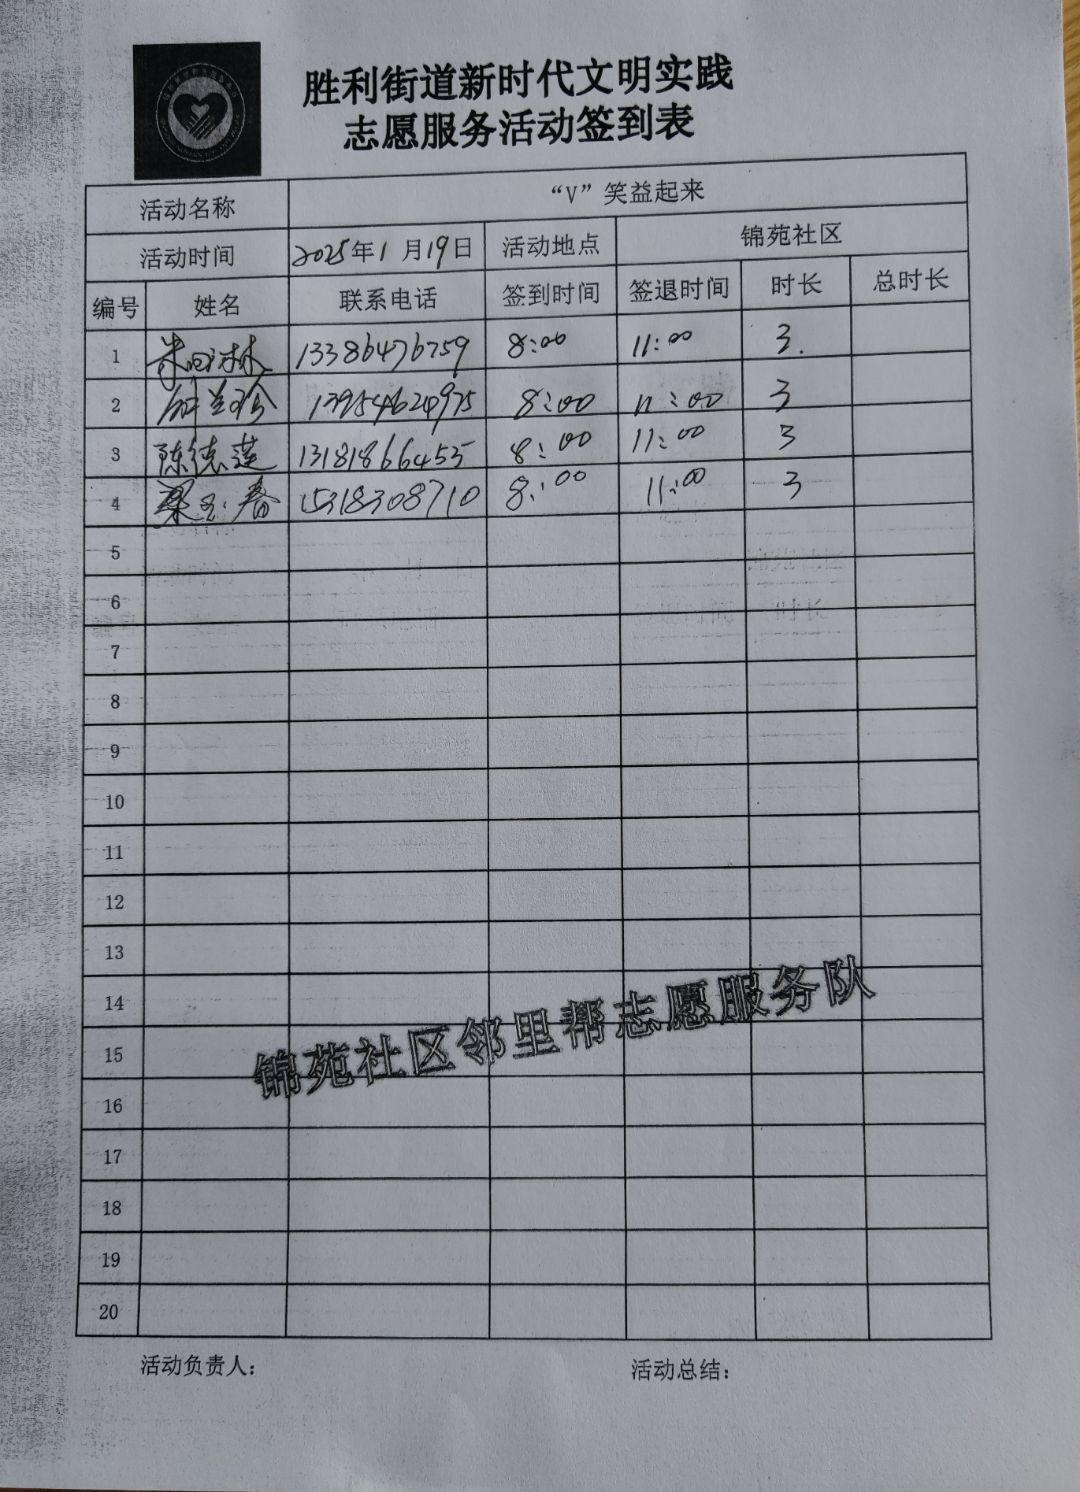 胜利街道新时代文明实践
志愿服务活动签到表
活动名称 “V”笑益起来
活动时间 2025年1月19日 活动地点 锦苑社区
编号 姓名 联系电话 签到时间 签退时间 时长 总时长
1 13386476759 8:00 11:00 3.
2 13954624975 8:00 11:00 3
3 陈德莲 13181866455 8:00 11:00 3
4 梁玉春 15318308710 8:00 11:00 3
5
6
7
8
9
10
11
12
13
14
15
16
17
18
19
20
锦苑社区邻里帮志愿服务队
活动负责人: 活动总结: